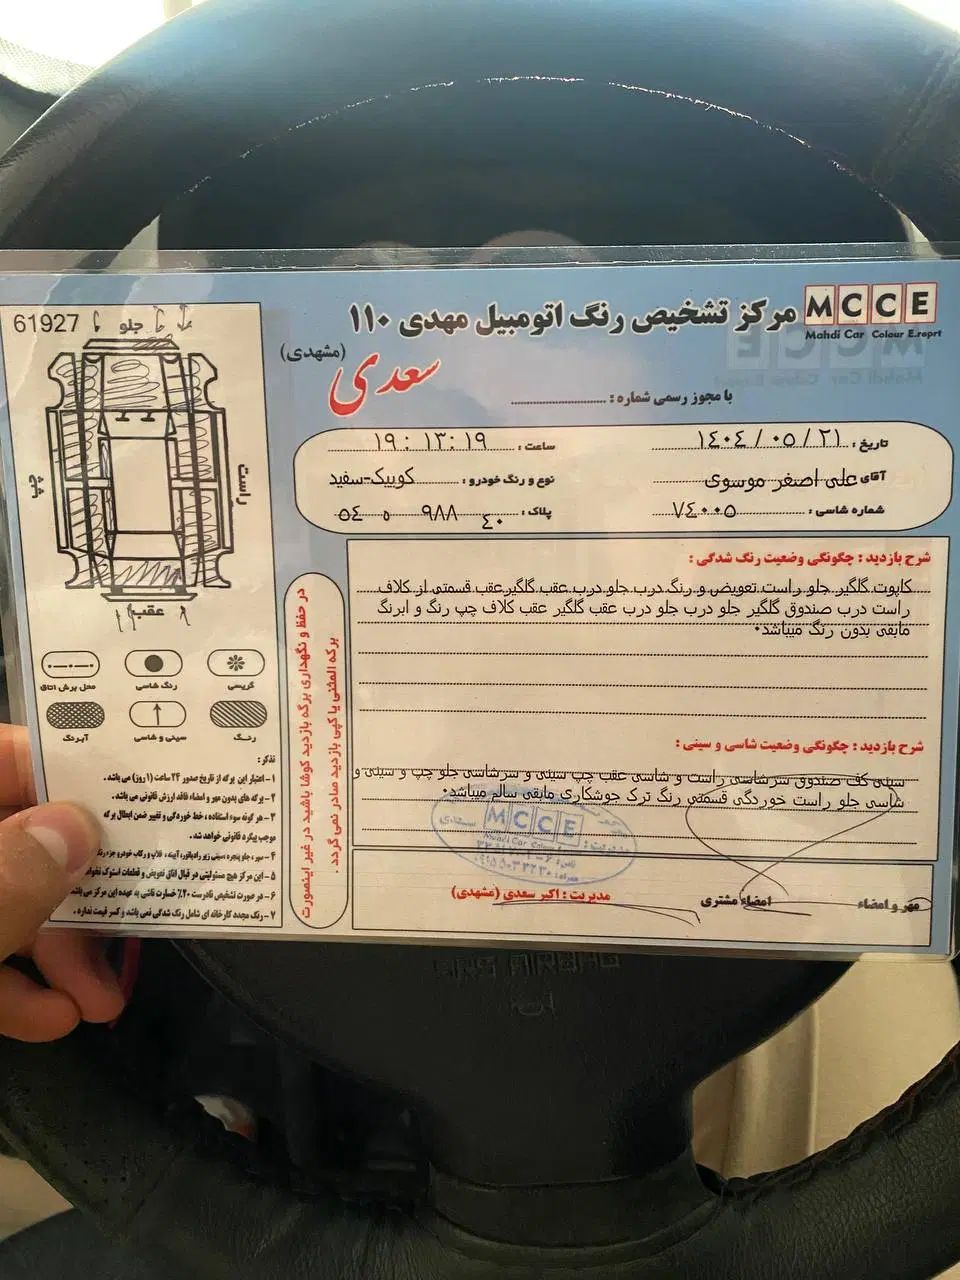 مرکز تشخیص رنگ اتومبیل مهدی ۱۱۰
MCCE
Mahdi Car Colour E.reprt
(مشهدی)
سعدی
با مجوز رسمی شماره :
تاریخ : ۱۴۰۴/۰۵/۲۱
ساعت : ۱۹:۱۳:۱۹
آقای علی اصغر موسوی
نوع و رنگ خودرو : کوییک-سفید
شماره شاسی : ۷۴۰۰۵
پلاک : ۴۰ ۹۸۸ ۵ ۵۴
شرح بازدید : چگونگی وضعیت رنگ شدگی :
کاپوت گلگیر جلو راست تعویض و رنگ درب جلو درب عقب گلگیر عقب قسمتی از کلاف
راست درب صندوق گلگیر جلو درب جلو درب عقب گلگیر عقب کلاف چپ رنگ و ابرنگ
مابقی بدون رنگ میباشد.
شرح بازدید : چگونگی وضعیت شاسی و سینی :
سینی کف صندوق سرشاسی راست و شاسی عقب چپ سینی و سرشاسی جلو چپ و سینی و
شاسی جلو راست خوردگی قسمتی رنگ ترک جوشکاری مابقی سالم میباشد.
MCCE
Mahdi Car Colour E
مهر و امضاء
امضاء مشتری
مدیریت : اکبر سعدی (مشهدی)
در حفظ و نگهداری برگه بازدید کوشا باشید در غیر اینصورت
برگه المثنی یا کپی بازدید صادر نمی گردد.
61927
جلو
راست
چپ
عقب
گریسی
رنگ شاسی
محل برش اتاق
رنگ
سینی و شاسی
آبرنگ
تذکر :
۱- اعتبار این برگه از تاریخ صدور ۲۴ ساعت (۱ روز) می باشد.
۲- برگه های بدون مهر و امضاء فاقد ارزش قانونی می باشد.
۳- هر گونه سوء استفاده ، خط خوردگی و تغییر ضمن ابطال برگه
موجب پیگرد قانونی خواهد شد.
۴- سپر، جلو پنجره ،سینی زیر رادیاتور، آیینه ، قلاب و رکاب خودرو جزء رنگ
۵- این مرکز هیچ مسئولیتی در قبال اتاق تعویض و قطعات استوک نخواهد
۶- در صورت تشخیص نادرست ۲۰٪ خسارت ناشی به عهده این مرکز می باشد
۷- رنگ مجدد کارخانه ای شامل رنگ شدگی نمی باشد و کسر قیمت ندارد.